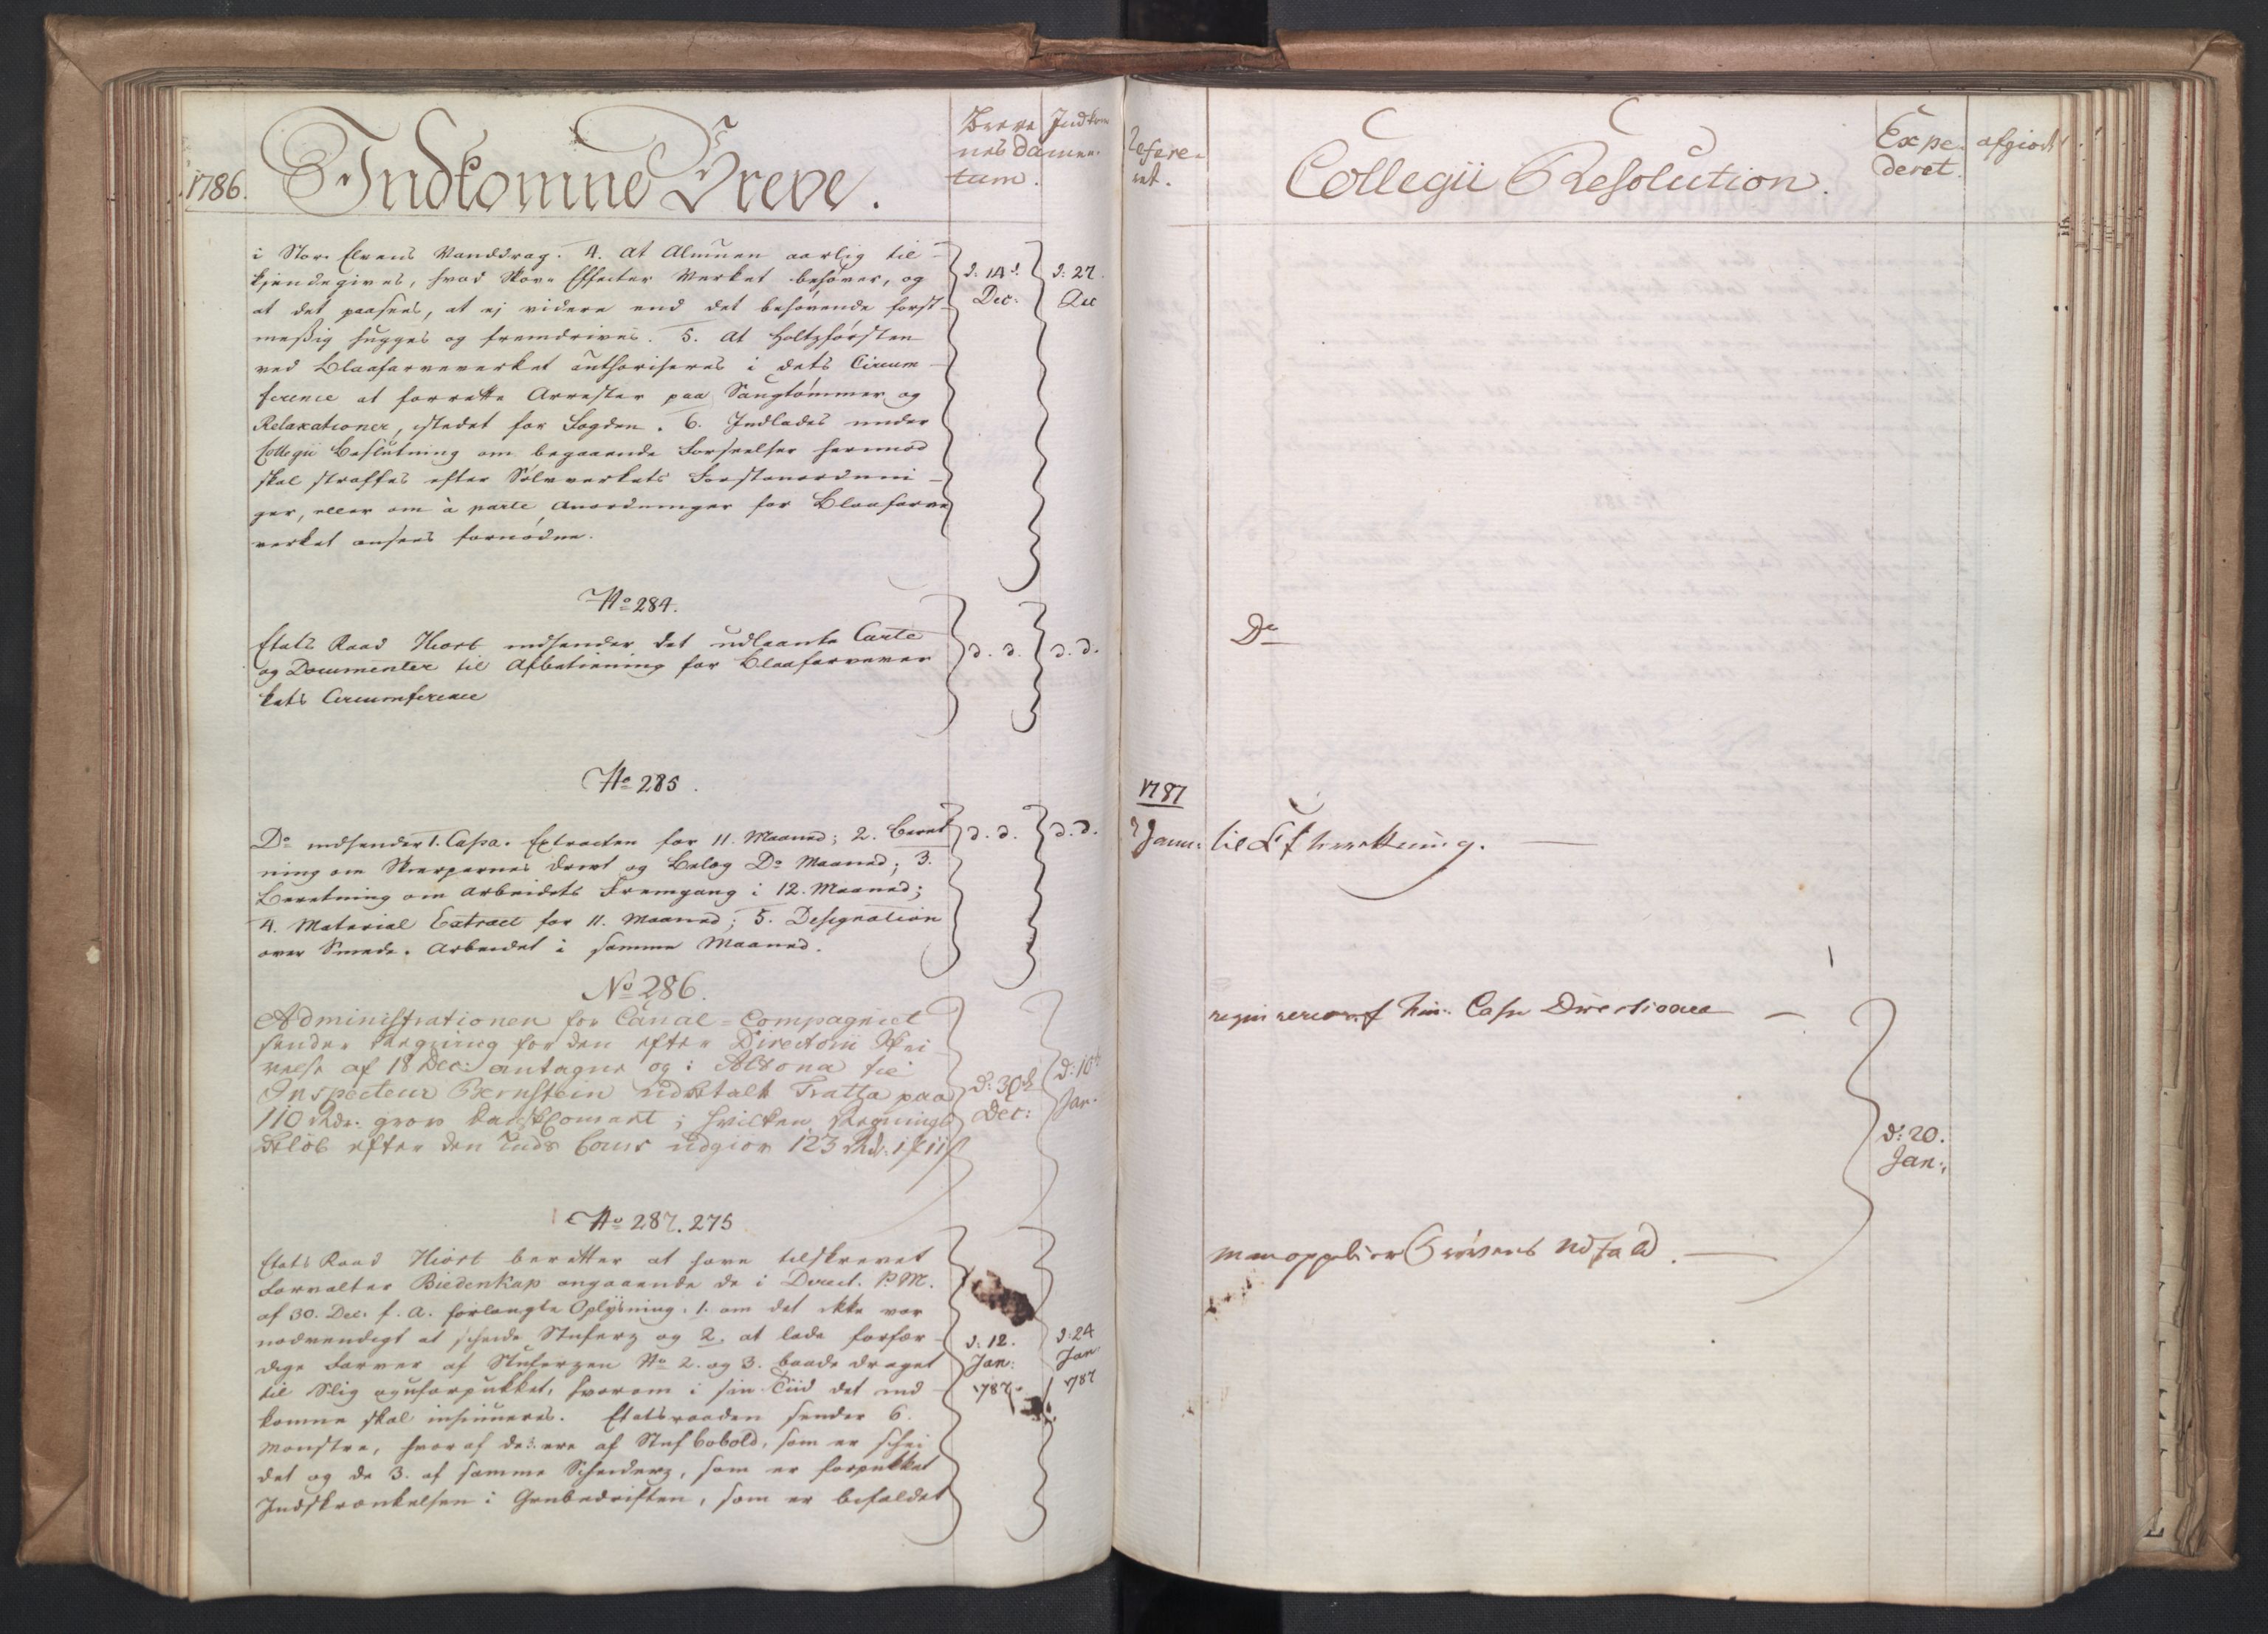 1786.
Indkomne Breve.
Breve
nes Da
tum.
Indkom
men.
i Stor Elvens Vanddrag. 4. at Almuen aarlig til-
kjendegives, hvad Skov-Effecter Verket behøver, og
at det paasees, at ej videre end det behøvende forst-
meßig hugges og fremdrives. 5. At Holtzførsten
ved Blaafarveverket authoriseres i dets Circum-
ference at forrette Arrester paa Saugtømmer og
Relaxationer, istedet for Fogden. 6. Indlades under
Collegii Beslutning om begaaende Forseelser herimod
skal straffes efter Sølvverkets Forstanordnin-
ger, eller om à parte Anordninger for Blaafarve
verket ansees fornødne.
d: 14d.
Dec:
d: 27.
Dec
No 284.
Etats Raad Hiort indsender det udlaante Carte
og Documenter til Afbetiening for Blaafarvever
kets Circumference
d. d.
d. d.
No 285.
Do indsender 1. Cassa-Extracten for 11. Maaned; 2. Beret
ning om Skierpernes Drivt og Belæg Do Maaned; 3.
Beretning om Arbeidets Fremgang i 12. Maaned;
4. Material Extract for 11. Maaned; 5. Designation
over Smede-Arbeidet i samme Maaned.
d. d.
d. d.
No 286.
Administrationen for Canal-Compagniet
sender Regning for den efter Directorii Skri
velse af 18 Dec: antagne og i Altona til
Inspecteur Bernstein udbetalt Tratta paa
110 Rdr. grov Dansk Courant; hvilken Regnings
Beløb efter den Tids Cours udgiør 123 Rdr. 1 11
d: 30d
Dec:
d: 10d
Jan.
No 287. 275
Etats Raad Hiort beretter at have tilskrevet
Forvalter Biedenkap angaaende de i Direct. P.M.
af 30. Dec. f. A. forlangte Oplysning. 1. om det ikke var
nødvendigt at scheide Stuferz og 2. at lade forfær-
dige Farver af Stuferzen No 2. og 3. baade draget
til Slig og uforpukket, hvorom i sin Tiid det ind-
komne skal insinueres. Etatsraaden sender 6.
Monstre, hvoraf de 3. ere af Stuf Cobold, som er schei
det og de 3. af samme Scheiderz, som er forpukket
Indskrænkelsen i Grubedriften, som er befaldet
d: 12.
Jan:
1787.
d: 24
Jan
1787
Refere-
ret.
Collegii Resolution.
Expe-
deret.
afgiort
Do
1787
2 Janu:
til Efterretning.
Cassa Directionen
d: 20.
Jan:
man oppebier Prøvens Udfald.